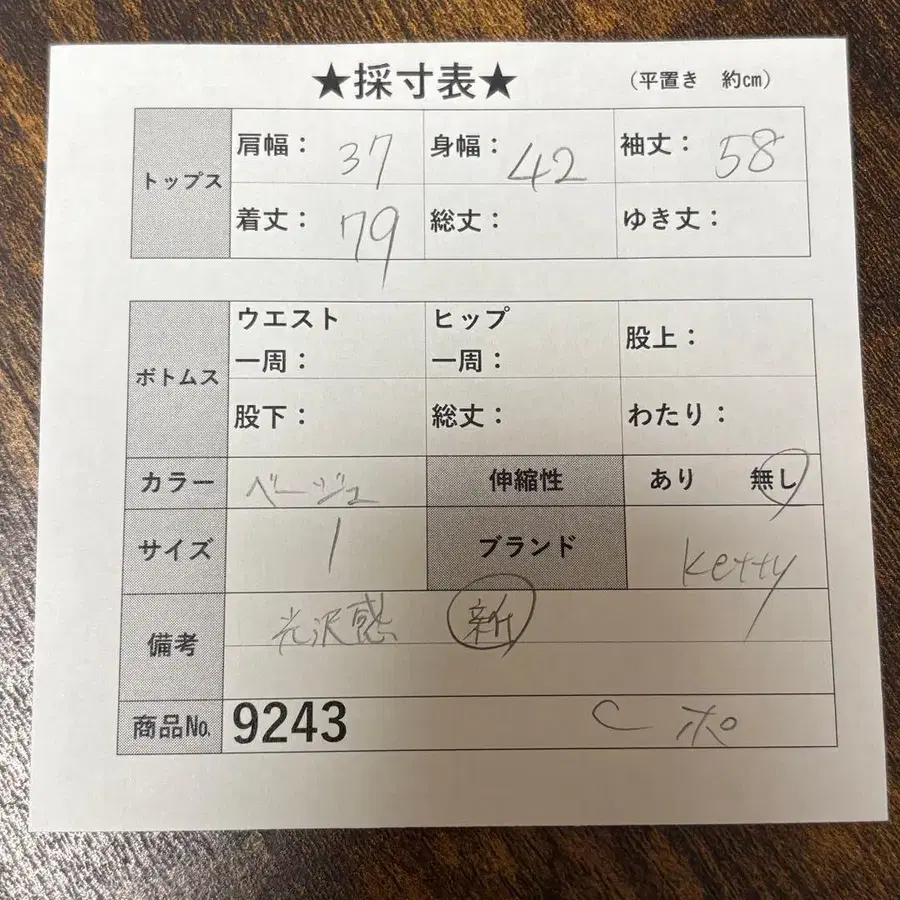 ★採寸表★ (平置き 約㎝)
トップス 肩幅: 37 身幅: 42 袖丈: 58
着丈: 79 総丈: ゆき丈:
ボトムス ウエスト一周: ヒップ一周: 股上:
股下: 総丈: わたり:
カラー ベージュ 伸縮性 あり 無し
サイズ 1 ブランド ketty
備考 光沢感 新
商品№ 9243 C ポ